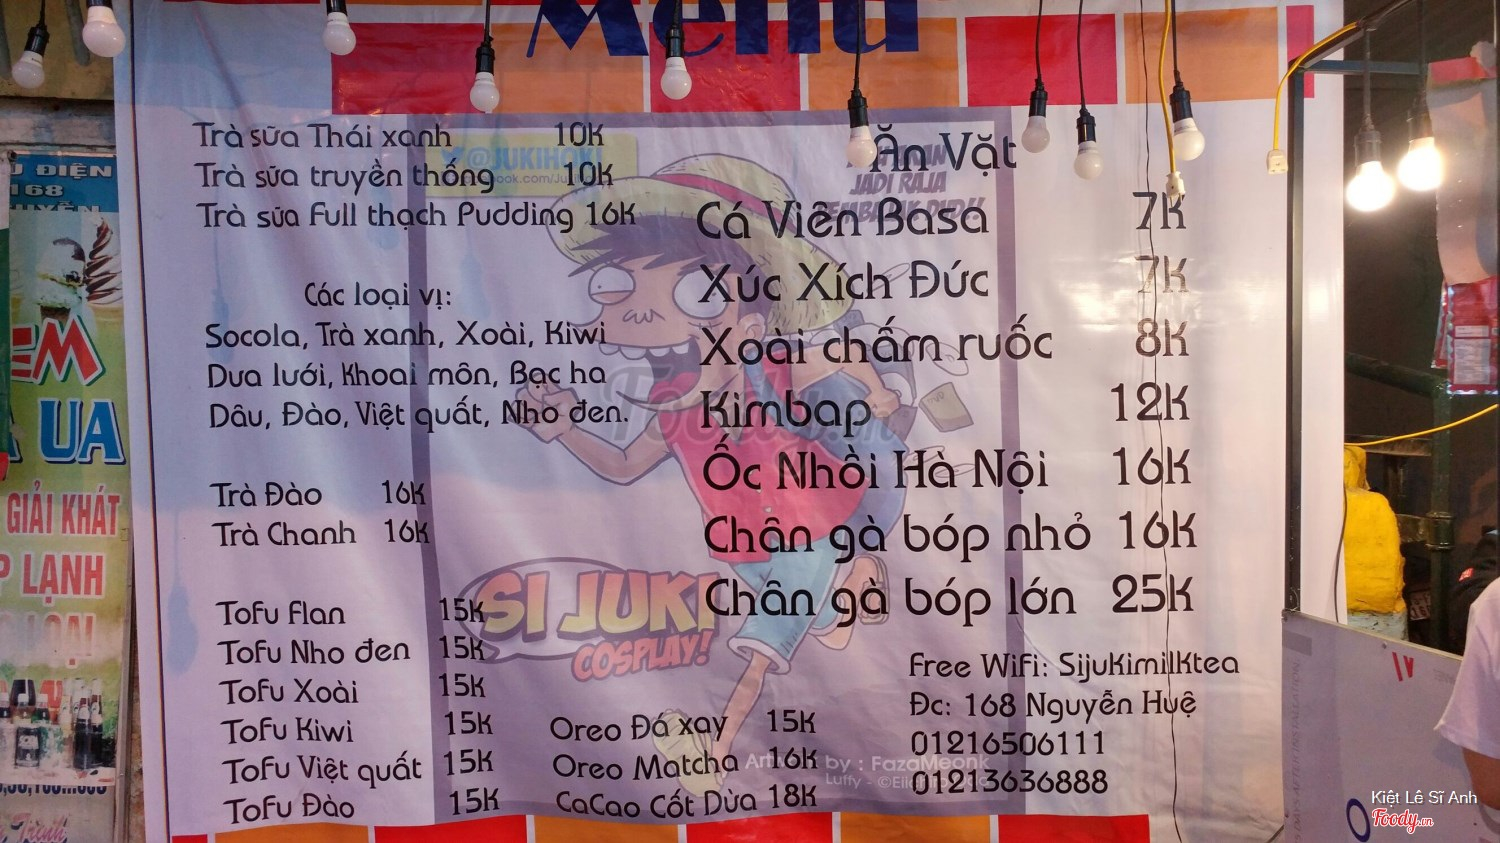 Menu
Trà sữa Thái xanh 10k
Trà sữa truyền thống 10k
Trà sữa Full thạch Pudding 16k
Các loại vị:
Socola, Trà xanh, Xoài, Kiwi
Dưa lưới, Khoai môn, Bạc hà
Dâu, Đào, Việt quất, Nho đen.
Trà Đào 16k
Trà Chanh 16k
Tofu Flan 15k
Tofu Nho đen 15k
Tofu Xoài 15k
Tofu Kiwi 15k
Tofu Việt quất 15k
Tofu Đào 15k
Oreo Đá xay 15k
Oreo Matcha 16k
CaCao Cốt Dừa 18k
Ăn Vặt
Cá Viên Basa 7k
Xúc Xích Đức 7k
Xoài chấm ruốc 8k
Kimbap 12k
Ốc Nhồi Hà Nội 16k
Chân gà bóp nhỏ 16k
Chân gà bóp lớn 25k
Free WiFi: Sijukimilktea
Đc: 168 Nguyễn Huệ
01216506111
01213636888
@JUKIHOKI
JADI RAJA
SI JUKI
COSPLAY!
Artwork by : FazaMeonk
Luffy - ©
ĐIỆN
168
UA
GIẢI KHÁT
LẠNH
Kiệt Lê Sĩ Anh
Foody.vn